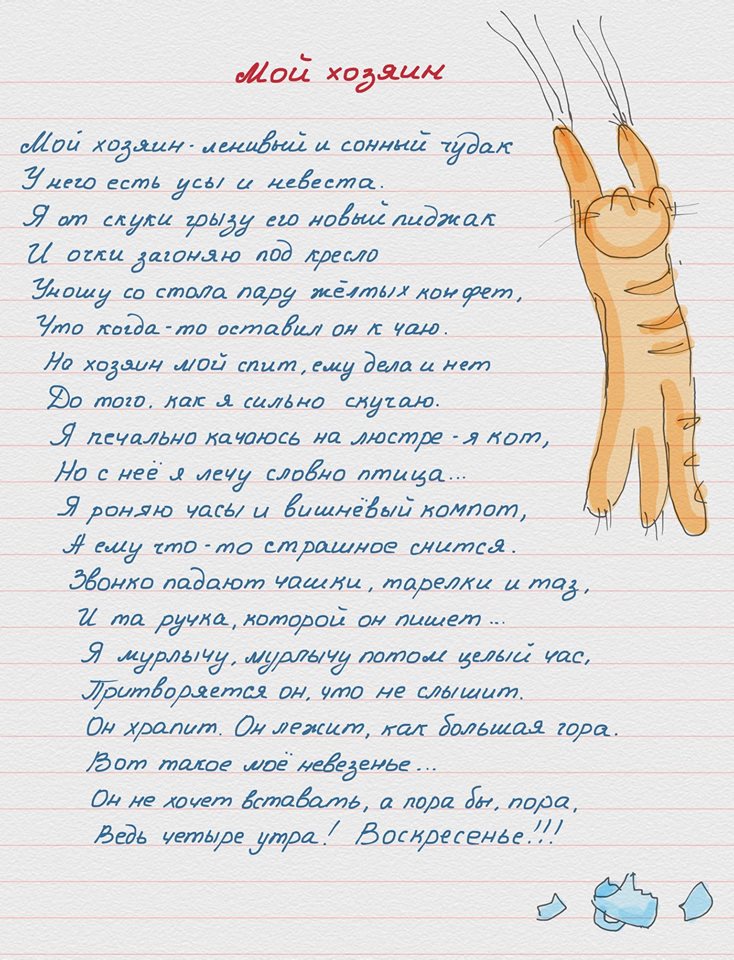 Мой хозяин
Мой хозяин - ленивый и сонный чудак
У него есть усы и невеста.
Я от скуки грызу его новый пиджак
И очки загоняю под кресло
Уношу со стола пару жёлтых конфет,
Что когда-то оставил он к чаю.
Но хозяин мой спит, ему дела и нет
До того, как я сильно скучаю.
Я печально качаюсь на люстре - я кот,
Но с неё я лечу словно птица...
Я роняю часы и вишнёвый компот,
А ему что-то страшное снится.
Звонко падают чашки, тарелки и таз,
И та ручка, которой он пишет...
Я мурлычу, мурлычу потом целый час,
Притворяется он, что не слышит.
Он храпит. Он лежит, как большая гора.
Вот такое моё невезенье...
Он не хочет вставать, а пора бы, пора,
Ведь четыре утра! Воскресенье!!!